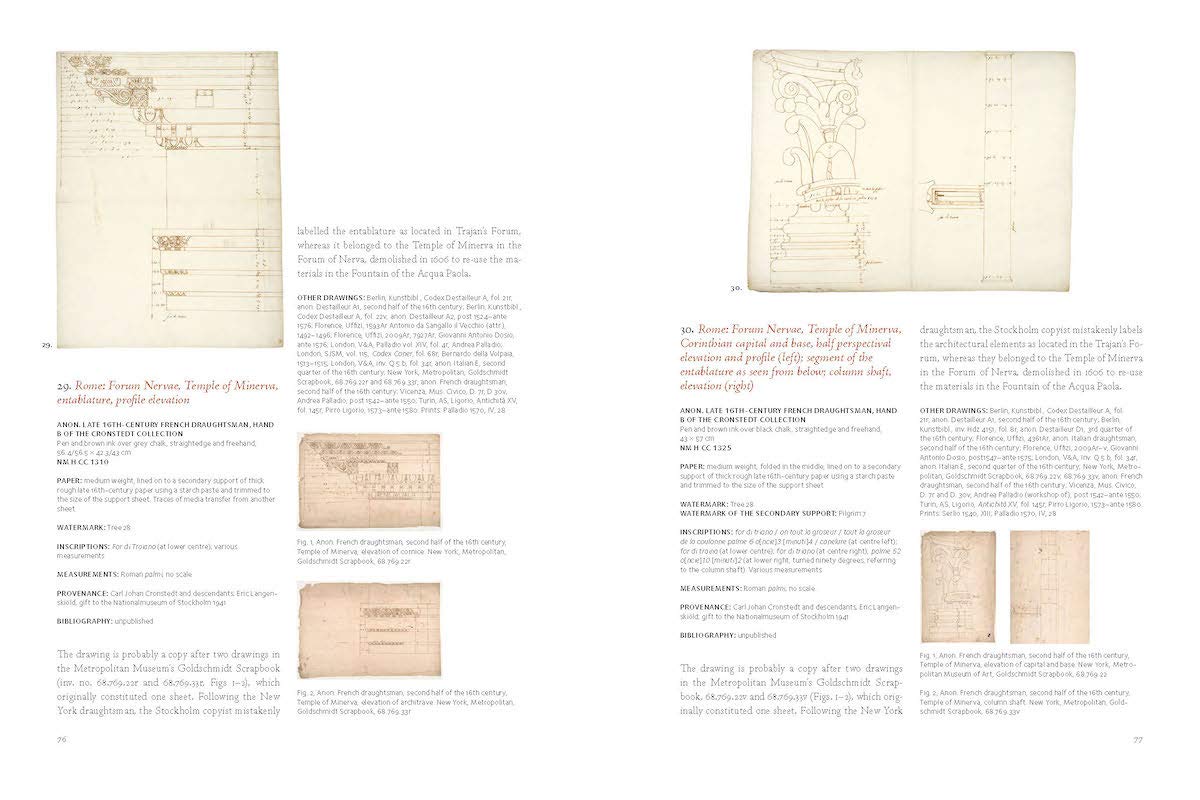 29.
29. Rome: Forum Nervae, Temple of Minerva,
entablature, profile elevation
ANON. LATE 16TH-CENTURY FRENCH DRAUGHTSMAN, HAND
B OF THE CRONSTEDT COLLECTION
Pen and brown ink over grey chalk, straightedge and freehand,
56.4/56.5 × 42.3/43 cm
NM H CC 1310
PAPER: medium weight, lined on to a secondary support of thick
rough late 16th-century paper using a starch paste and trimmed to
the size of the support sheet. Traces of media transfer from another
sheet
WATERMARK: Tree 28
INSCRIPTIONS: For di Traiana (at lower centre); various
measurements
MEASUREMENTS: Roman palmi; no scale
PROVENANCE: Carl Johan Cronstedt and descendants; Eric Langen-
skiöld; gift to the Nationalmuseum of Stockholm 1941
BIBLIOGRAPHY: unpublished
The drawing is probably a copy after two drawings in
the Metropolitan Museum's Goldschmidt Scrapbook
(inv. no. 68.769.22r and 68.769.33r, Figs 1–2), which
originally constituted one sheet. Following the New
York draughtsman, the Stockholm copyist mistakenly
76
labelled the entablature as located in Trajan's Forum,
whereas it belonged to the Temple of Minerva in the
Forum of Nerva, demolished in 1606 to re-use the ma-
terials in the Fountain of the Acqua Paola.
OTHER DRAWINGS: Berlin, Kunstbibl., Codex Destailleur A, fol. 21r,
anon. Destailleur A1, second half of the 16th century; Berlin, Kunstbibl.,
Codex Destailleur A, fol. 22v, anon. Destailleur A2, post 1524–ante
1576; Florence, Uffizi, 1593Ar Antonio da Sangallo il Vecchio (attr.),
1492–1496; Florence, Uffizi, 2009Ar, 7921Ar, Giovanni Antonio Dosio,
ante 1576; London, V&A, Palladio vol. XIV, fol. 4r, Andrea Palladio;
London, SJSM, vol. 115, Codex Coner, fol. 68r, Bernardo della Volpaia,
1513–1515; London, V&A, inv. Q 5 b, fol. 34r, anon. Italian E, second
quarter of the 16th century; New York, Metropolitan, Goldschmidt
Scrapbook, 68.769.22r and 68.769.33r, anon. French draughtsman,
second half of the 16th century; Vicenza, Mus. Civico, D. 7r, D 30v,
Andrea Palladio; post 1542–ante 1550; Turin, AS, Ligorio, Antichità XV,
fol. 145r, Pirro Ligorio, 1573–ante 1580. Prints: Palladio 1570, IV, 28
Fig. 1, Anon. French draughtsman, second half of the 16th century,
Temple of Minerva, elevation of cornice. New York, Metropolitan,
Goldschmidt Scrapbook, 68.769.22r
Fig. 2, Anon. French draughtsman, second half of the 16th century,
Temple of Minerva, elevation of architrave. New York, Metropolitan,
Goldschmidt Scrapbook, 68.769.33r
30.
30. Rome: Forum Nervae, Temple of Minerva,
Corinthian capital and base, half perspectival
elevation and profile (left); segment of the
entablature as seen from below; column shaft,
elevation (right)
ANON. LATE 16TH-CENTURY FRENCH DRAUGHTSMAN, HAND
B OF THE CRONSTEDT COLLECTION
Pen and brown ink over black chalk, straightedge and freehand,
43 × 57 cm
NM H CC 1325
PAPER: medium weight, folded in the middle, lined on to a secondary
support of thick rough late 16th-century paper using a starch paste
and trimmed to the size of the support sheet
WATERMARK: Tree 28
WATERMARK OF THE SECONDARY SUPPORT: Pilgrim 7
INSCRIPTIONS: for di triana / on tout la groseur / tout la groseur
de la coulonne palme 6 o[ncie]3 [minuti]4 / canelure (at centre left);
for di traina (at lower centre); for di triana (at centre right); palme 52
o[ncie]10 [minuti]2 (at lower right, turned ninety degrees, referring
to the column shaft). Various measurements
MEASUREMENTS: Roman palmi; no scale
PROVENANCE: Carl Johan Cronstedt and descendants; Eric Langen-
skiöld; gift to the Nationalmuseum of Stockholm 1941
BIBLIOGRAPHY: unpublished
The drawing is probably a copy after two drawings
in the Metropolitan Museum's Goldschmidt Scrap-
book, 68.769.22v and 68.769.33v (Figs. 1–2), which orig-
inally constituted one sheet. Following the New York
draughtsman, the Stockholm copyist mistakenly labels
the architectural elements as located in the Trajan's Fo-
rum, whereas they belonged to the Temple of Minerva
in the Forum of Nerva, demolished in 1606 to re-use
the materials in the Fountain of the Acqua Paola.
OTHER DRAWINGS: Berlin, Kunstbibl., Codex Destailleur A, fol.
21r, anon. Destailleur A1, second half of the 16th century; Berlin,
Kunstbibl., inv. Hdz 4151, fol. 8r, anon. Destailleur D1, 3rd quarter of
the 16th century; Florence, Uffizi, 4361Ar, anon. Italian draughtsman,
second half of the 16th century; Florence, Uffizi, 2009Ar–v, Giovanni
Antonio Dosio, post1547–ante 1575; London, V&A, inv. Q 5 b, fol. 34r,
anon. Italian E, second quarter of the 16th century; New York, Metro-
politan, Goldschmidt Scrapbook, 68.769.22v, 68.769.33v, anon. French
draughtsman, second half of the 16th century; Vicenza, Mus. Civico,
D. 7r and D. 30v, Andrea Palladio (workshop of), post 1542–ante 1550;
Turin, AS, Ligorio, Antichità XV, fol. 145r, Pirro Ligorio, 1573–ante 1580.
Prints: Serlio 1540, XIII; Palladio 1570, IV, 28
Fig. 1, Anon. French draughtsman, second half of the 16th century,
Temple of Minerva, elevation of capital and base. New York, Metro-
politan Museum of Art, Goldschmidt Scrapbook, 68.769.22
Fig. 2, Anon. French draughtsman, second half of the 16th century,
Temple of Minerva, column shaft. New York, Metropolitan, Gold-
schmidt Scrapbook, 68.769.33v
77